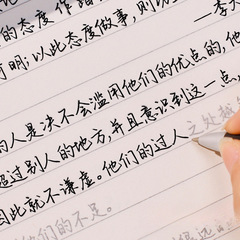 的态度作
—李大
可明；以此态度做事，则
的人是决不会滥用他们的优点的，他
超过别人的地方，并且意识到这一点，
因此就不谦虚。他们的过人之处越
他们的不足。